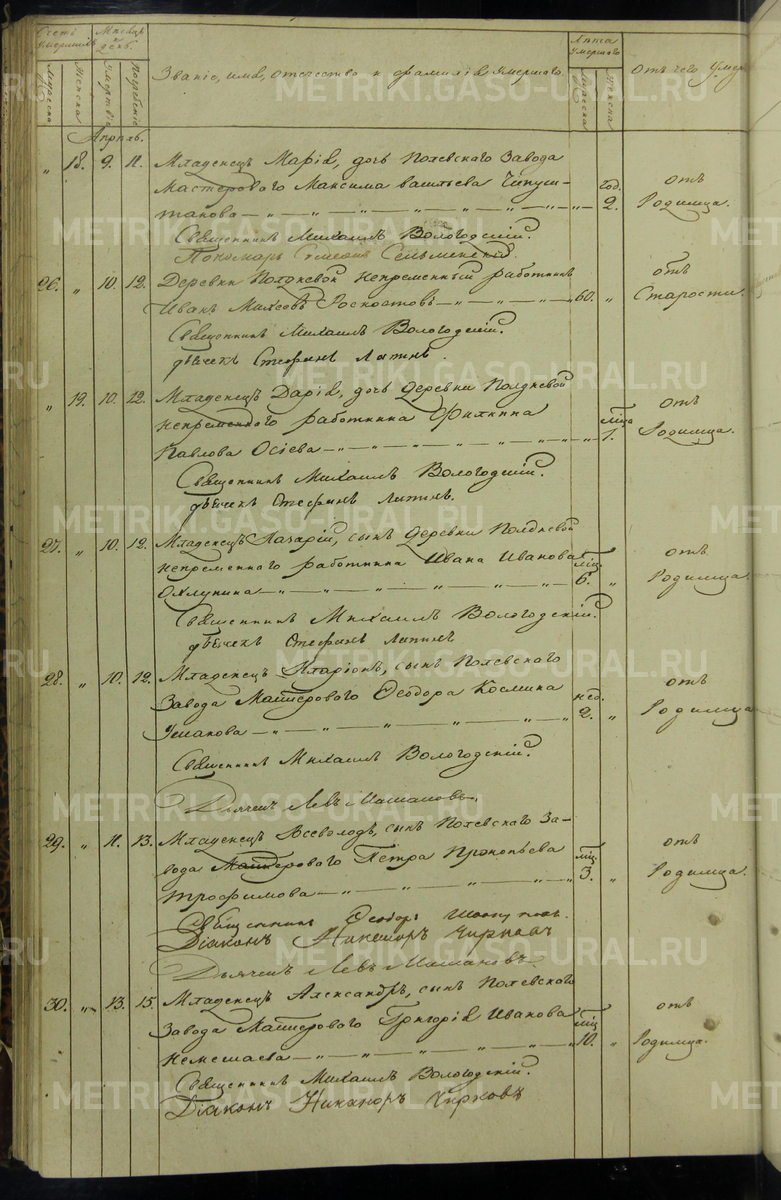 Счетъ умершихъ
Месяцъ и день
Лѣта умершаго
Званіе, имя, отечество и фамилія умершаго.
Отъ чего умер
Мужеска
Женска
Смертвіе
Погребеніе
Мужеска
Женска
Апрѣль.
„ 18. 9. 11. Младенецъ Марія, дочь Полевскаго Завода
Мастероваго Максима Васильева год. отъ
танова — „ — „ — „ — 2. Родимца.
Священникъ Михаилъ Вологодскій.
Пономарь Симеонъ Сельменскій.
26. „ 10. 12. Деревни Полдневой непременный работникъ отъ
Иванъ Роскостовъ — „ — „ — 60. „ Старости.
Священникъ Михаилъ Вологодскій.
дьячекъ Стефанъ Лапинъ.
„ 19. 10. 12. Младенецъ Дарія, дочь деревни Полдневой отъ
непременнаго работника Филиппа мѣс.
Павлова Осіева — „ — „ — „ 1. Родимца.
Священникъ Михаилъ Вологодскій.
дьячекъ Стефанъ Лапинъ.
27. „ 10. 12. Младенецъ Лазарій, сынъ деревни Полдневой отъ
непременнаго работника Ивана Иванова мѣс.
— „ — „ — „ 6. „ Родимца.
Священникъ Михаилъ Вологодскій.
дьячекъ Стефанъ Лапинъ
28. „ 10. 12. Младенецъ Иларіонъ, сынъ Полевскаго отъ
Завода Мастероваго Ѳеодора Космина нед.
Ушакова — „ — „ — „ 2. „ Родимца
Священникъ Михаилъ Вологодскій.
Дьячекъ Левъ
29. „ 11. 13. Младенецъ Всеволодъ, сынъ Полевскаго За- отъ
вода Мастероваго Петра Прокопьева мѣс.
Трофимова — „ — „ — „ 3. „ Родимца.
Священникъ Ѳеодоръ
Діаконъ Никаноръ Чирковъ
Дьячекъ Левъ
30. „ 13. 15. Младенецъ Александръ, сынъ Полевскаго отъ
Завода Мастероваго Григорія Иванова мѣс.
Немешаева — „ — „ — „ 10. „ Родимца.
Священникъ Михаилъ Вологодскій.
Діаконъ Никаноръ Чирковъ
METRIKI.GASO-URAL.RU